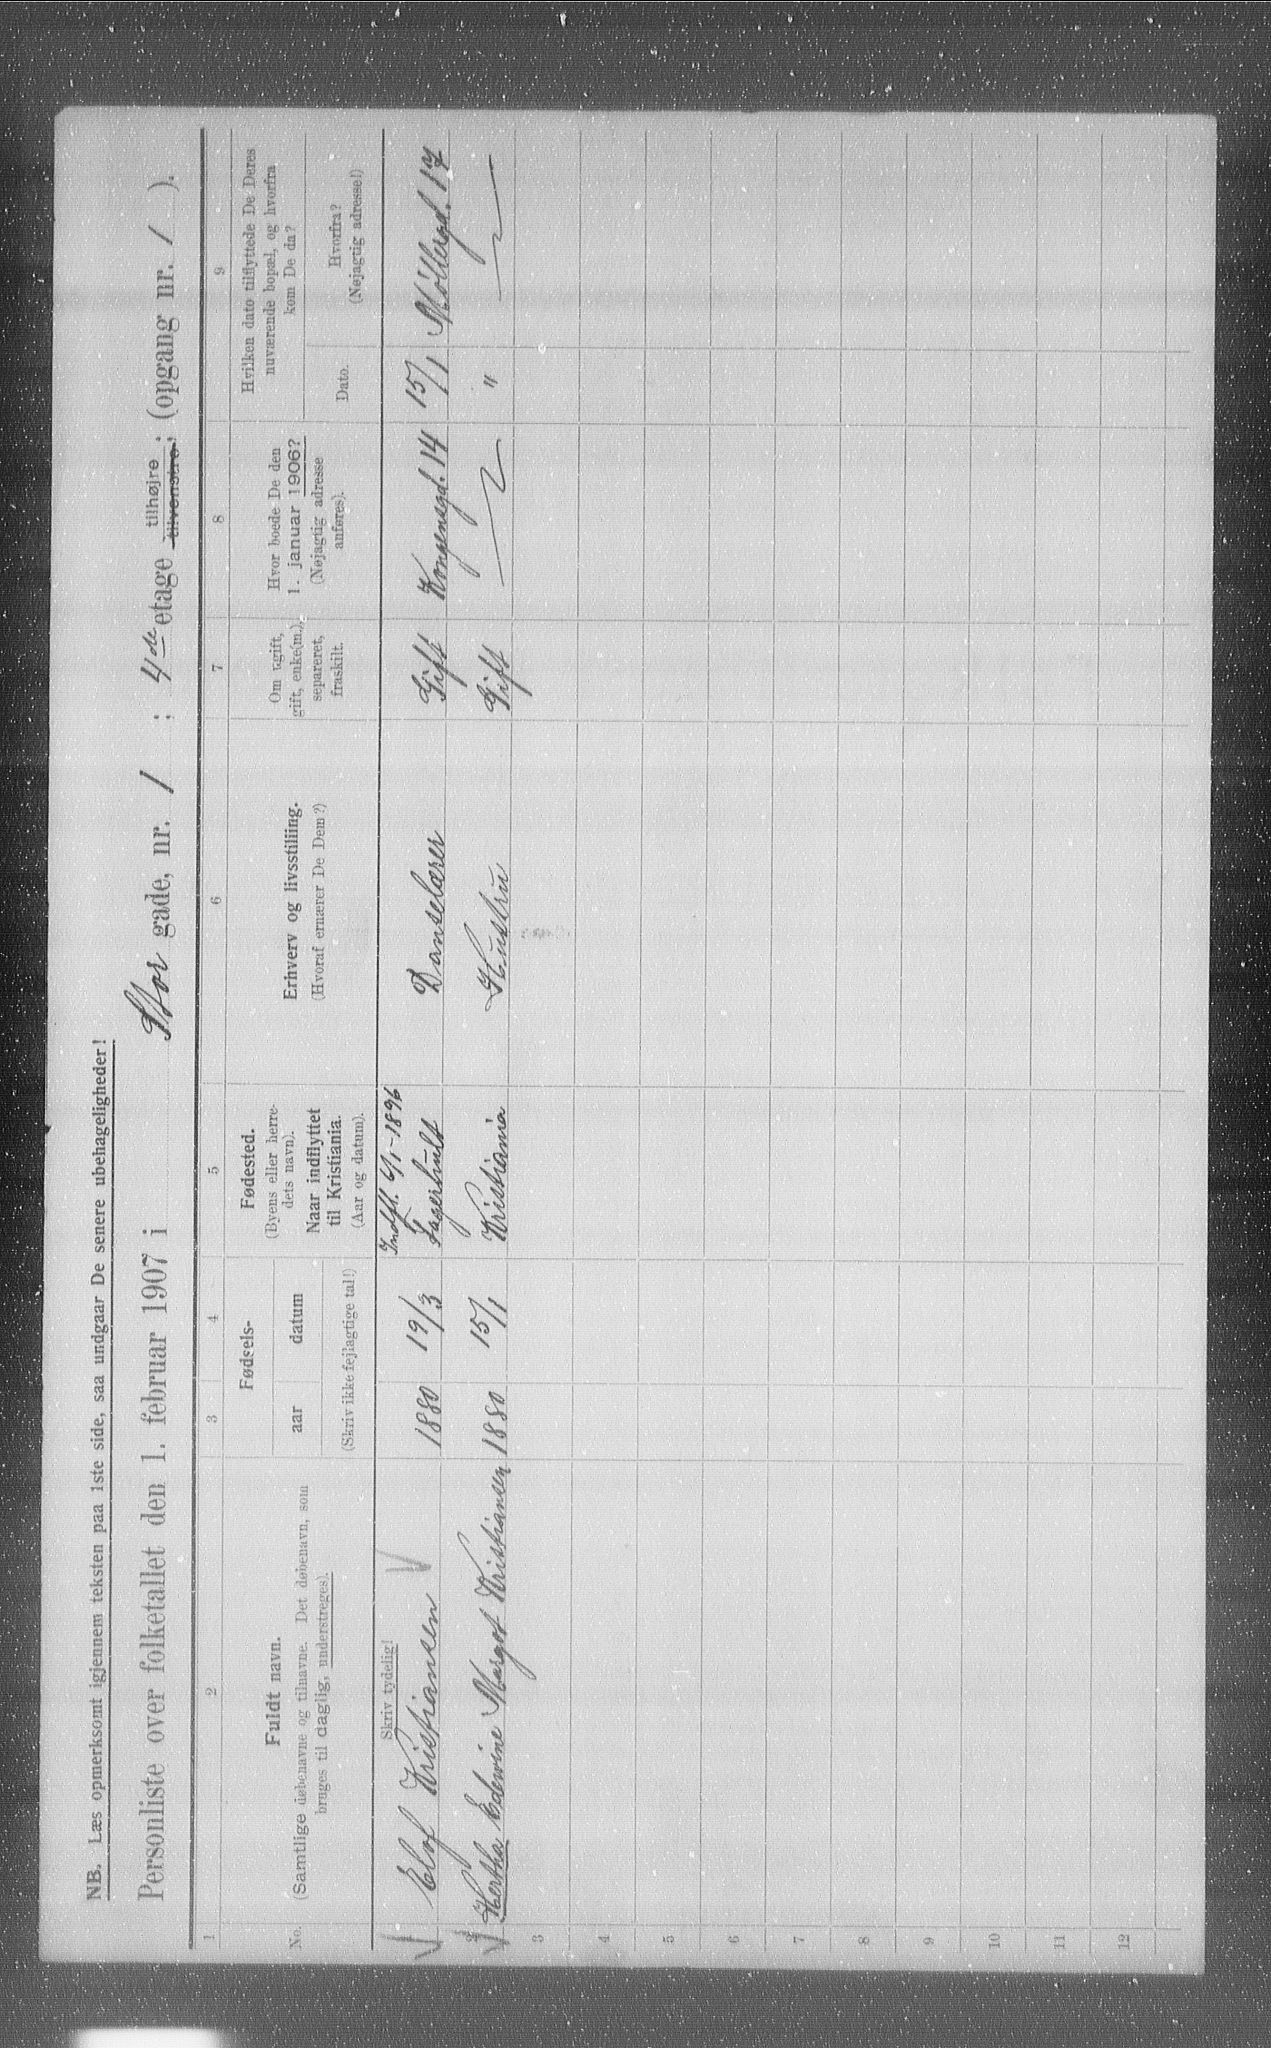 NB. Læs opmerksomt igjennem teksten paa 1ste side, saa undgaar De senere ubehageligheder!
Personliste over folketallet den 1. februar 1907 i Stor gade, nr. 1 ; 4de etage tilhøjre tilvenstre; (opgang nr. 1 ).
1 2 3 4 5 6 7 8 9
No.
Fuldt navn.
(Samtlige døbenavne og tilnavne. Det døbenavn, som
bruges til daglig, understreges).
Fødsels-
aar datum
(Skriv ikke fejlagtige tal!)
Fødested.
(Byens eller herre-
dets navn).
Naar indflyttet
til Kristiania.
(Aar og datum).
Erhverv og livsstilling.
(Hvoraf ernærer De Dem?)
Om ugift,
gift, enke(m.),
separeret,
fraskilt.
Hvor boede De den
1. januar 1906?
(Nøjagtig adresse
anføres).
Hvilken dato tilflyttede De Deres
nuværende bopæl, og hvorfra
kom De da?
Dato.
Hvorfra?
(Nøjagtig adresse!)
Skriv tydelig!
Indfl. 6/1-1896
1 Olof Kristiansen 1880 19/3 Fagerhult Danselærer Gift Kongensgd. 14 15/1 Møllergd. 17
2 Hertha Edevine Margot Kristiansen 1880 15/1 Kristiania Hustru Gift "
3
4
5
6
7
8
9
10
11
12